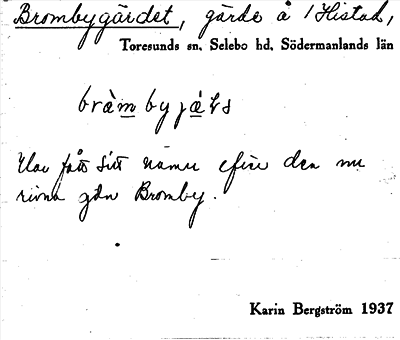 Brombygärdet, gärde å
Toresunds sn, Selebo hd, Södermanlands län
Har fått sitt namn efter den nu
rivna gdn Bromby.
Karin Bergström 1937